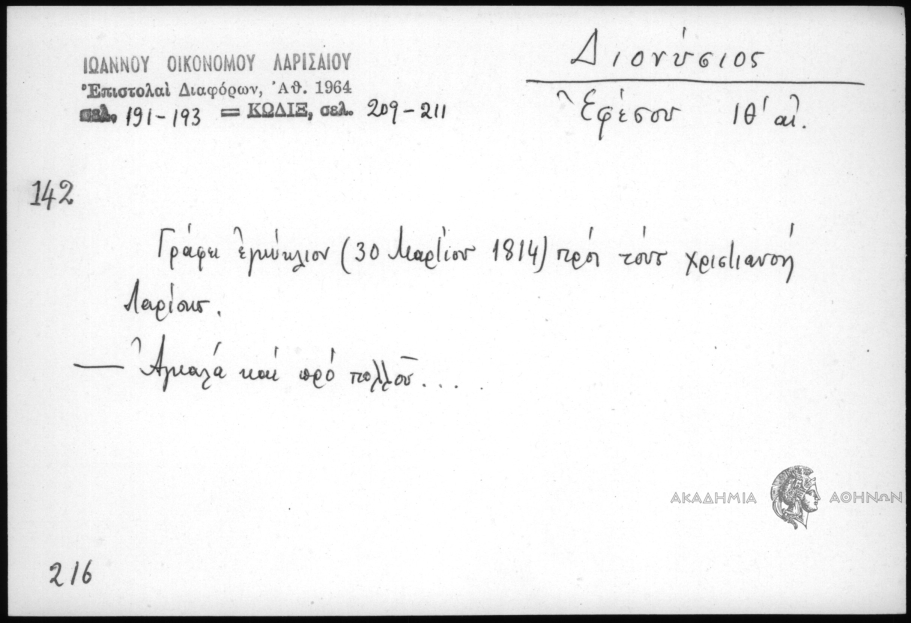 ΙΩΑΝΝΟΥ ΟΙΚΟΝΟΜΟΥ ΛΑΡΙΣΑΙΟΥ
Ἐπιστολαὶ Διαφόρων, Ἀθ. 1964
σελ. 191-193 = ΚΩΔΙΞ, σελ. 209-211
Διονύσιος
Ἐφέσου ΙΘ' αἰ.
142
Γράφει ἐγκύκλιον (30 Μαρτίου 1814) πρὸς τοὺς χριστιανοὺς
Λαρίσης.
— Ἀγκαλά καὶ πρό πολλοῦ....
ΑΚΑΔΗΜΙΑ ΑΘΗΝΩΝ
216